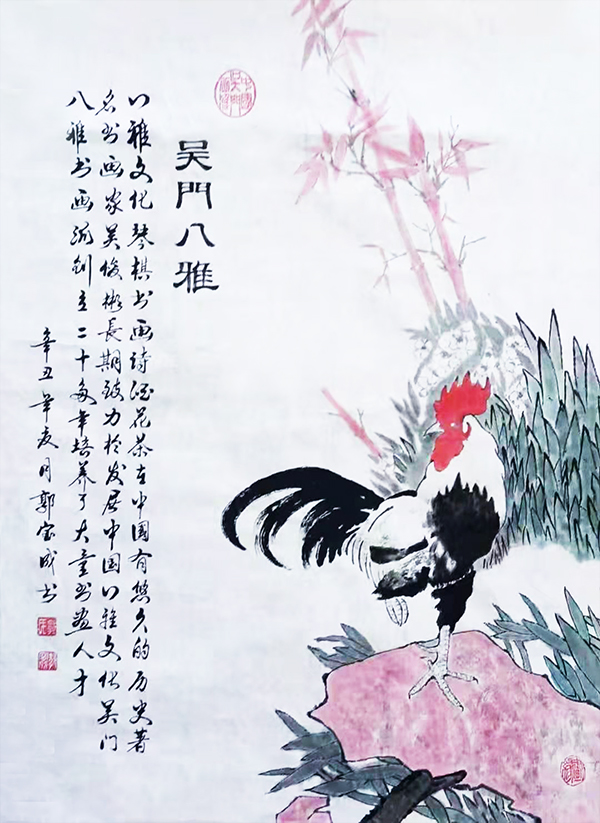 吴門八雅
八雅文化琴棋书画诗酒花茶在中国有悠久的历史著
名书画家吴俊彬長期致力於发展中国八雅文化吴门
八雅书画派创立二十多年培养了大量书画人才
辛丑年夏月郭宝成书